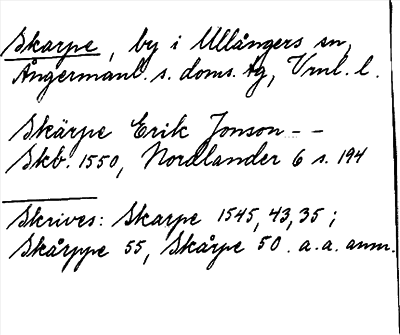 Skarpe, by i Ullångers sn,
Ångermanl. s. doms. tg, Vrnl. l.
Skärpe Erik Jonson - -
Skb. 1550, Nordlander 6 s. 194
Skrives: Skarpe 1545, 43, 35;
Skårppe 55, Skårpe 50. a.a. anm.